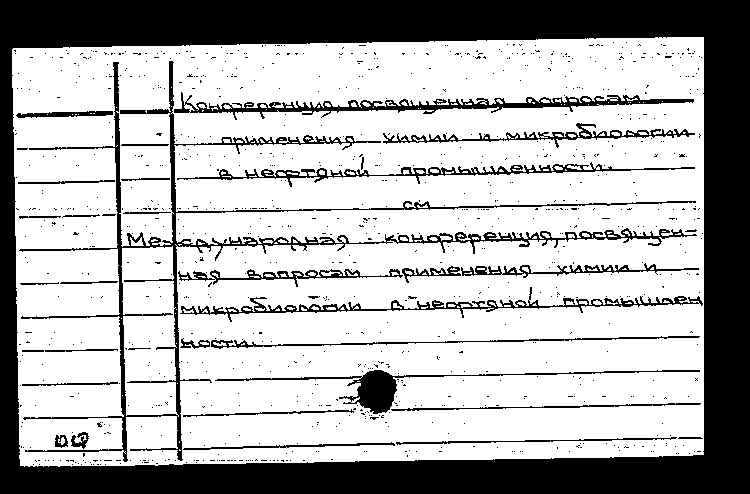 Конференция, посвященная вопросам
применения химии и микробиологии
в нефтяной промышленности.
см
Международная конференция, посвящен=
ная вопросам применения химии и
микробиологии в нефтяной промышлен
ности.